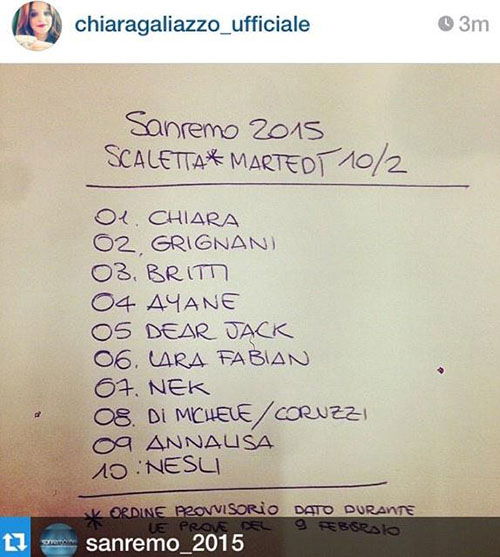 chiaragaliazzo_ufficiale 3m
Sanremo 2015
SCALETTA* MARTEDÌ 10/2
01. CHIARA
02. GRIGNANI
03. BRITTI
04 AYANE
05 DEAR JACK
06. LARA FABIAN
07. NEK
08. DI MICHELE/CORUZZI
09 ANNALISA
10: NESLI
* ORDINE PROVVISORIO DATO DURANTE
LE PROVE DEL 9 FEBBRAIO
sanremo_2015